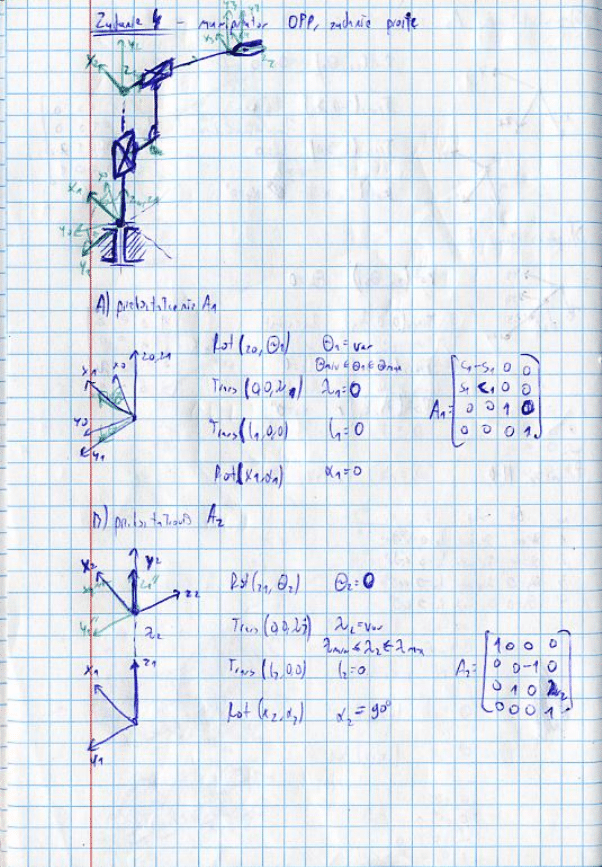 Zadanie 4 - manipulator OPP, zadanie proste
y2
x2
z2
x1
y0
y1
A) przekształcenie A1
Rot(z0, Θ1) Θ1 = var
Θmin ≤ Θ1 ≤ Θmax
Trans(0,0,λ1) λ1 = 0
Trans(l1,0,0) l1 = 0
Rot(x1,α1) α1 = 0
A1 =
c1 -s1 0 0
s1 c1 0 0
0 0 1 0
0 0 0 1
x1 x0 z0,z1
y0
y1
B) A2
Rot(z1, Θ2) Θ2 = 0
Trans(0,0,λ2) λ2 = var
λmin ≤ λ2 ≤ λmax
Trans(l2,0,0) l2 = 0
Rot(x2,α2) α2 = 90°
A2 =
1 0 0 0
0 0 -1 0
0 1 0 λ2
0 0 0 1
x2 y2
z2
λ2
x1 z1
y1